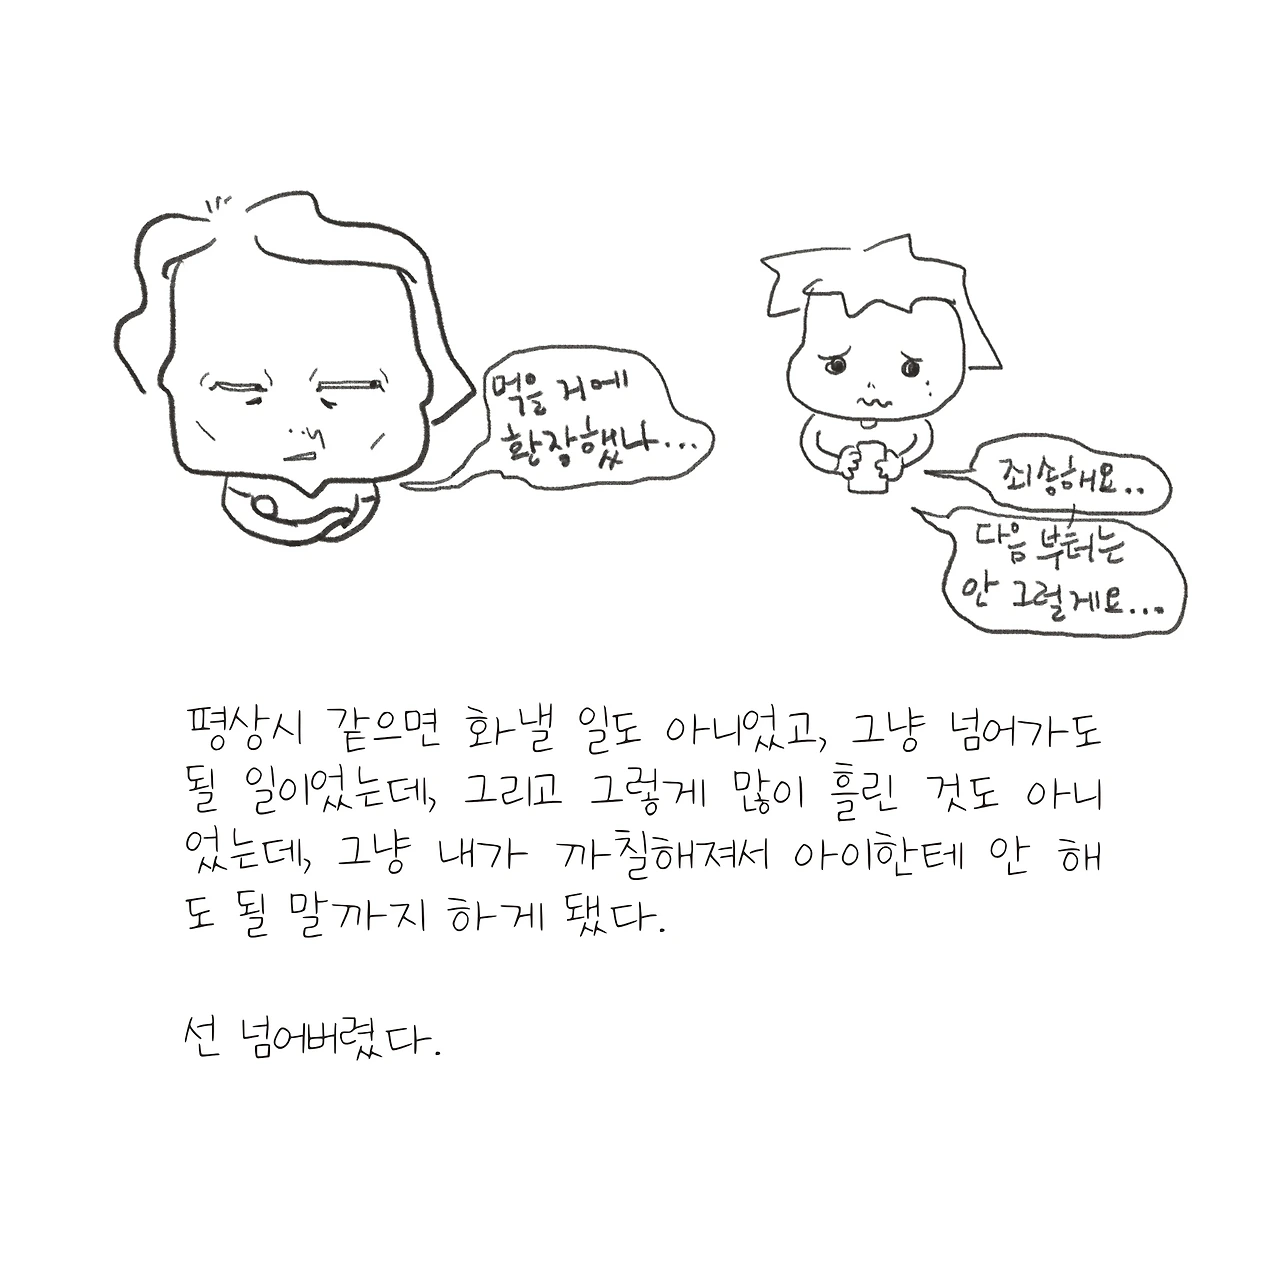 먹을 거에
환장했나...
죄송해요..
다음 부터는
안 그럴게요...
평상시 같으면 화낼 일도 아니었고, 그냥 넘어가도
될 일이었는데, 그리고 그렇게 많이 흘린 것도 아니
었는데, 그냥 내가 까칠해져서 아이한테 안 해
도 될 말까지 하게 됐다.
선 넘어버렸다.